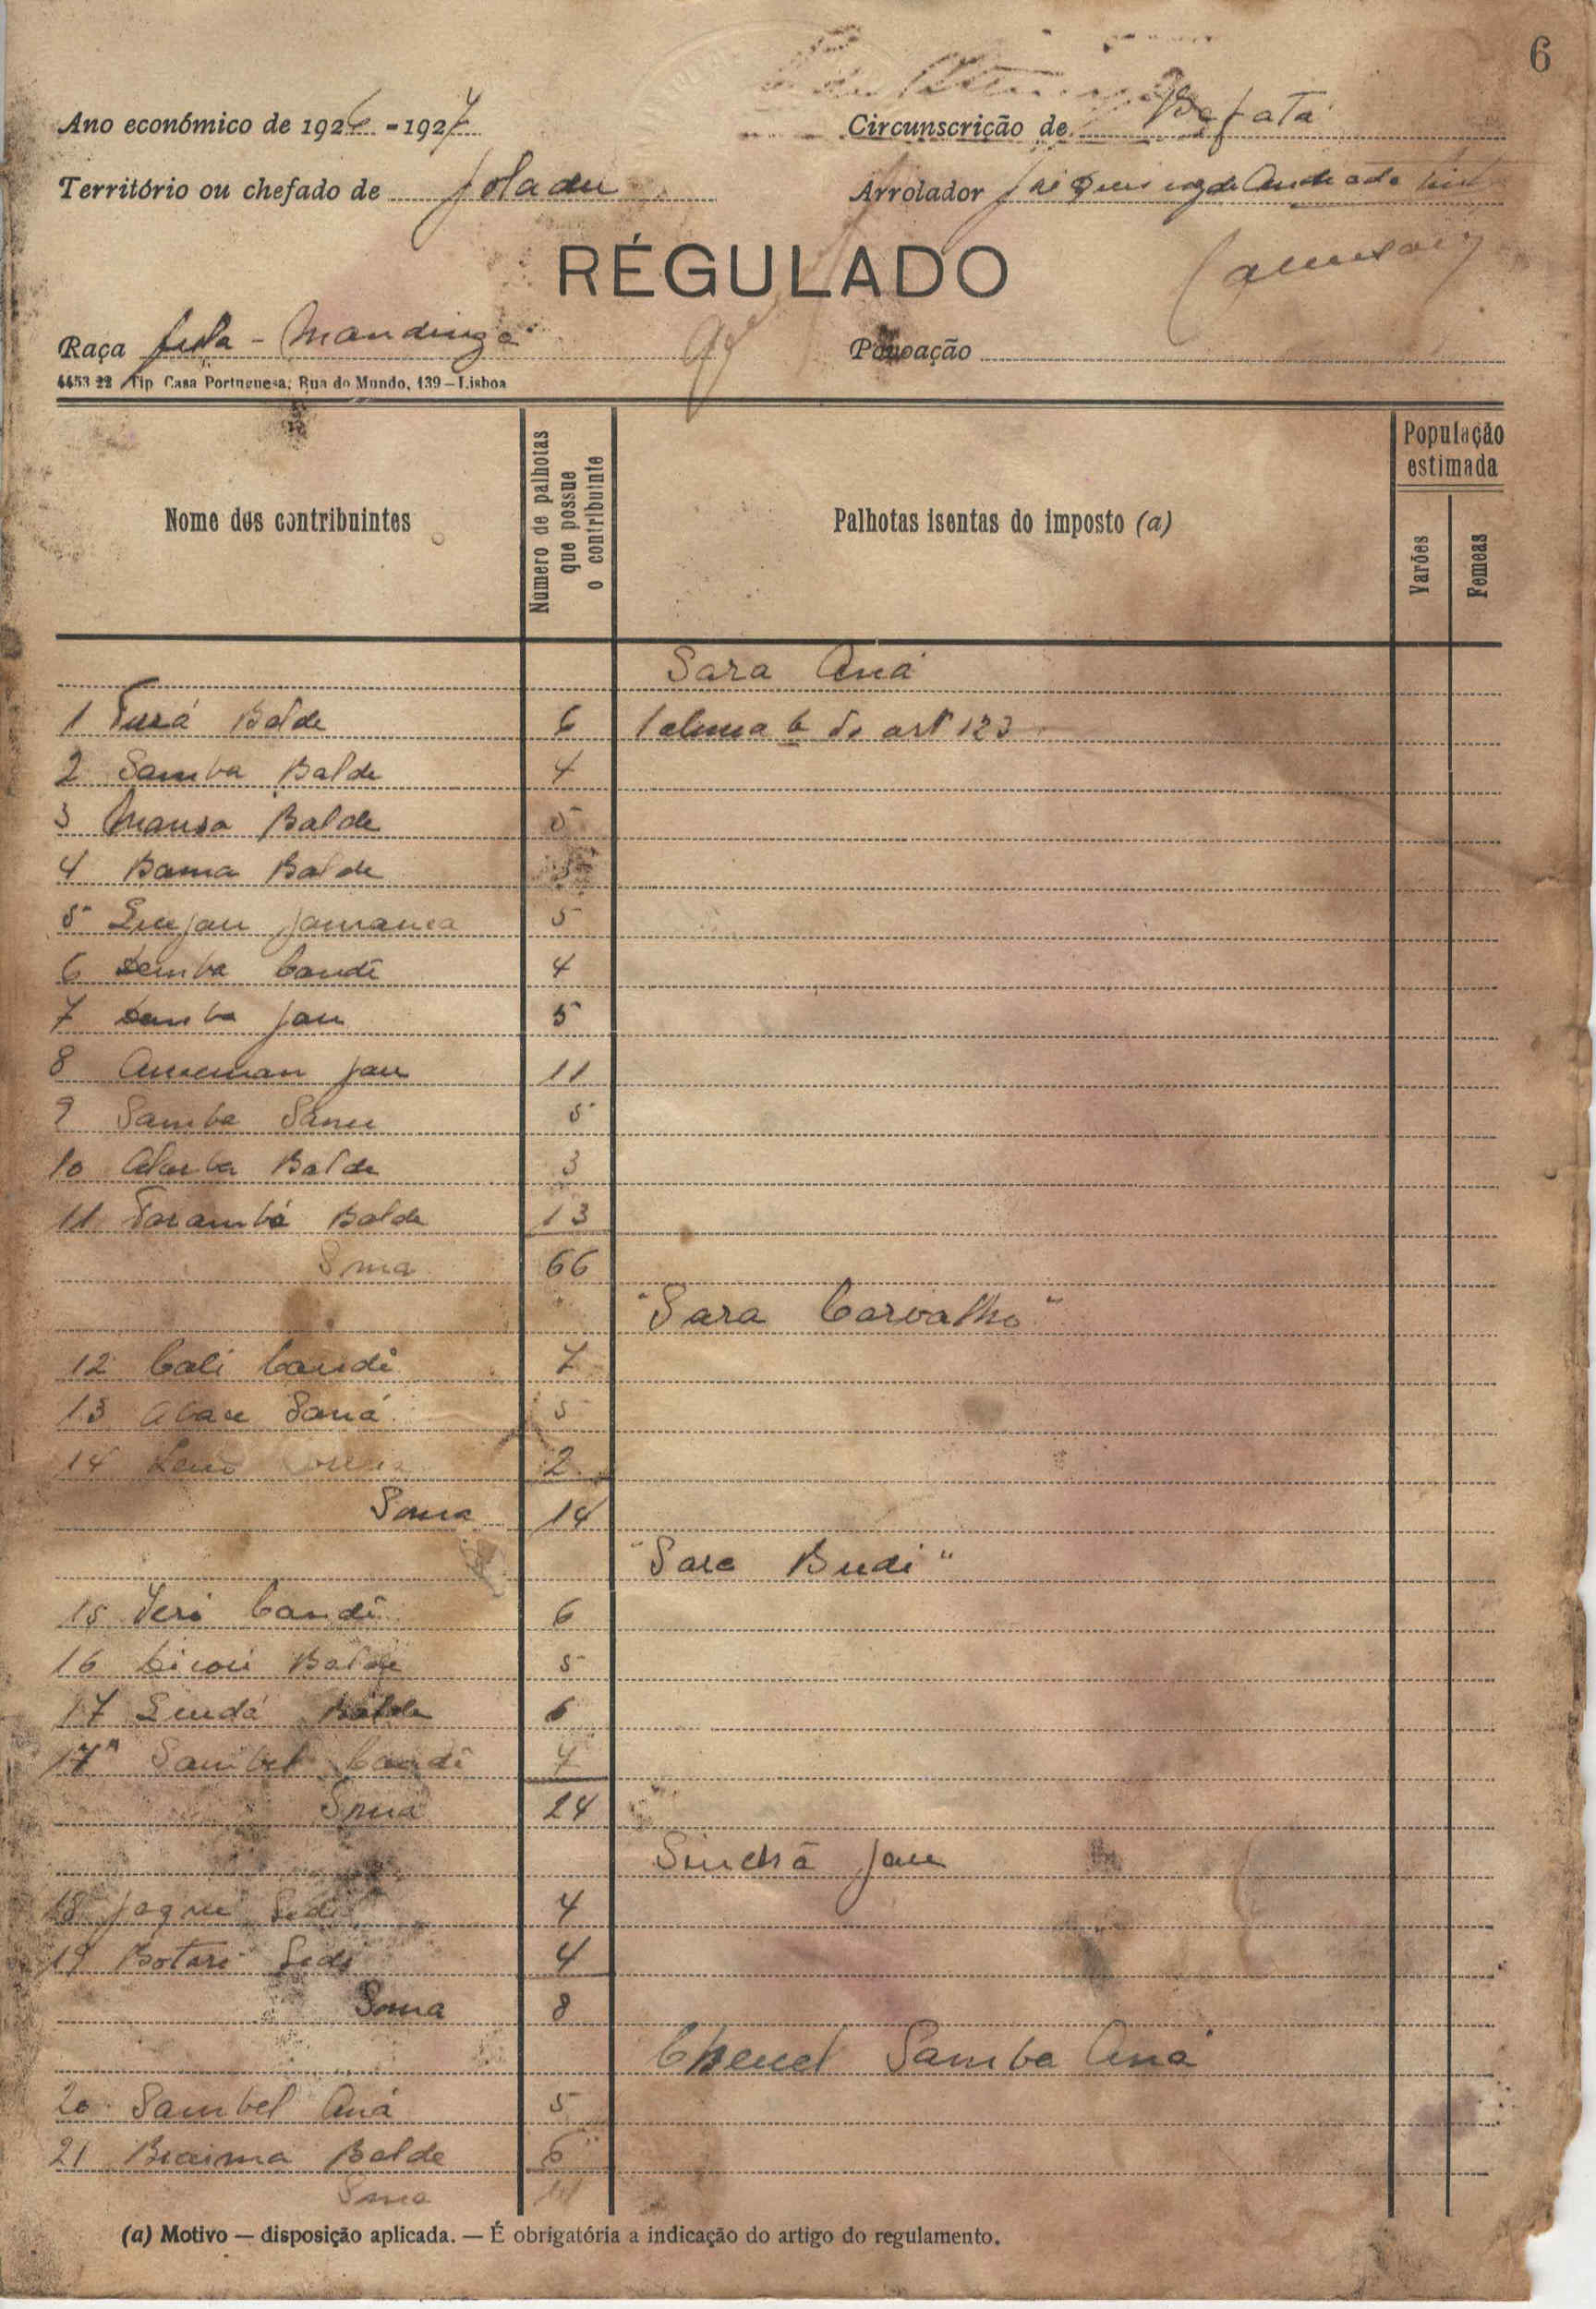 6
Ano económico de 1926-1927
Circunscrição de Bafatá
Território ou chefado de Joladu
Arrolador de Andrade
RÉGULADO
Raça fula - Mandinga
Povoação
4453 22 Tip Casa Portuguesa, Rua do Mundo, 139-Lisboa
Nome dos contribuintes
Numero de palhotas que possue o contribuinte
Palhotas isentas do imposto (a)
População estimada
Varões
Femeas
Sara Aná
1 Turá Balde 6 do artº 123
2 Samba Balde 4
3 Mansa Balde 5
4 Bama Balde 5
5 Jamanca 5
6 Semba Candi 4
7 Samba Jau 5
8 Jau 11
9 Samba Sanu 5
10 Balde 3
11 Farambá Balde 13
Sma 66
"Sara Carvalho"
12 Cali Candi 7
13 Sauá 5
14 2
Soma 14
"Sare Budi"
15 Candi 6
16 Balde 5
17 Balde 6
17ª Sambel Candi 7
Sma 24
Sinchã Jau
18 Sedi 4
19 Botari Sedi 4
Soma 8
Samba Aná
20 Sambel Aná 5
21 Braima Balde 6
Sma
(a) Motivo — disposição aplicada. — É obrigatória a indicação do artigo do regulamento.